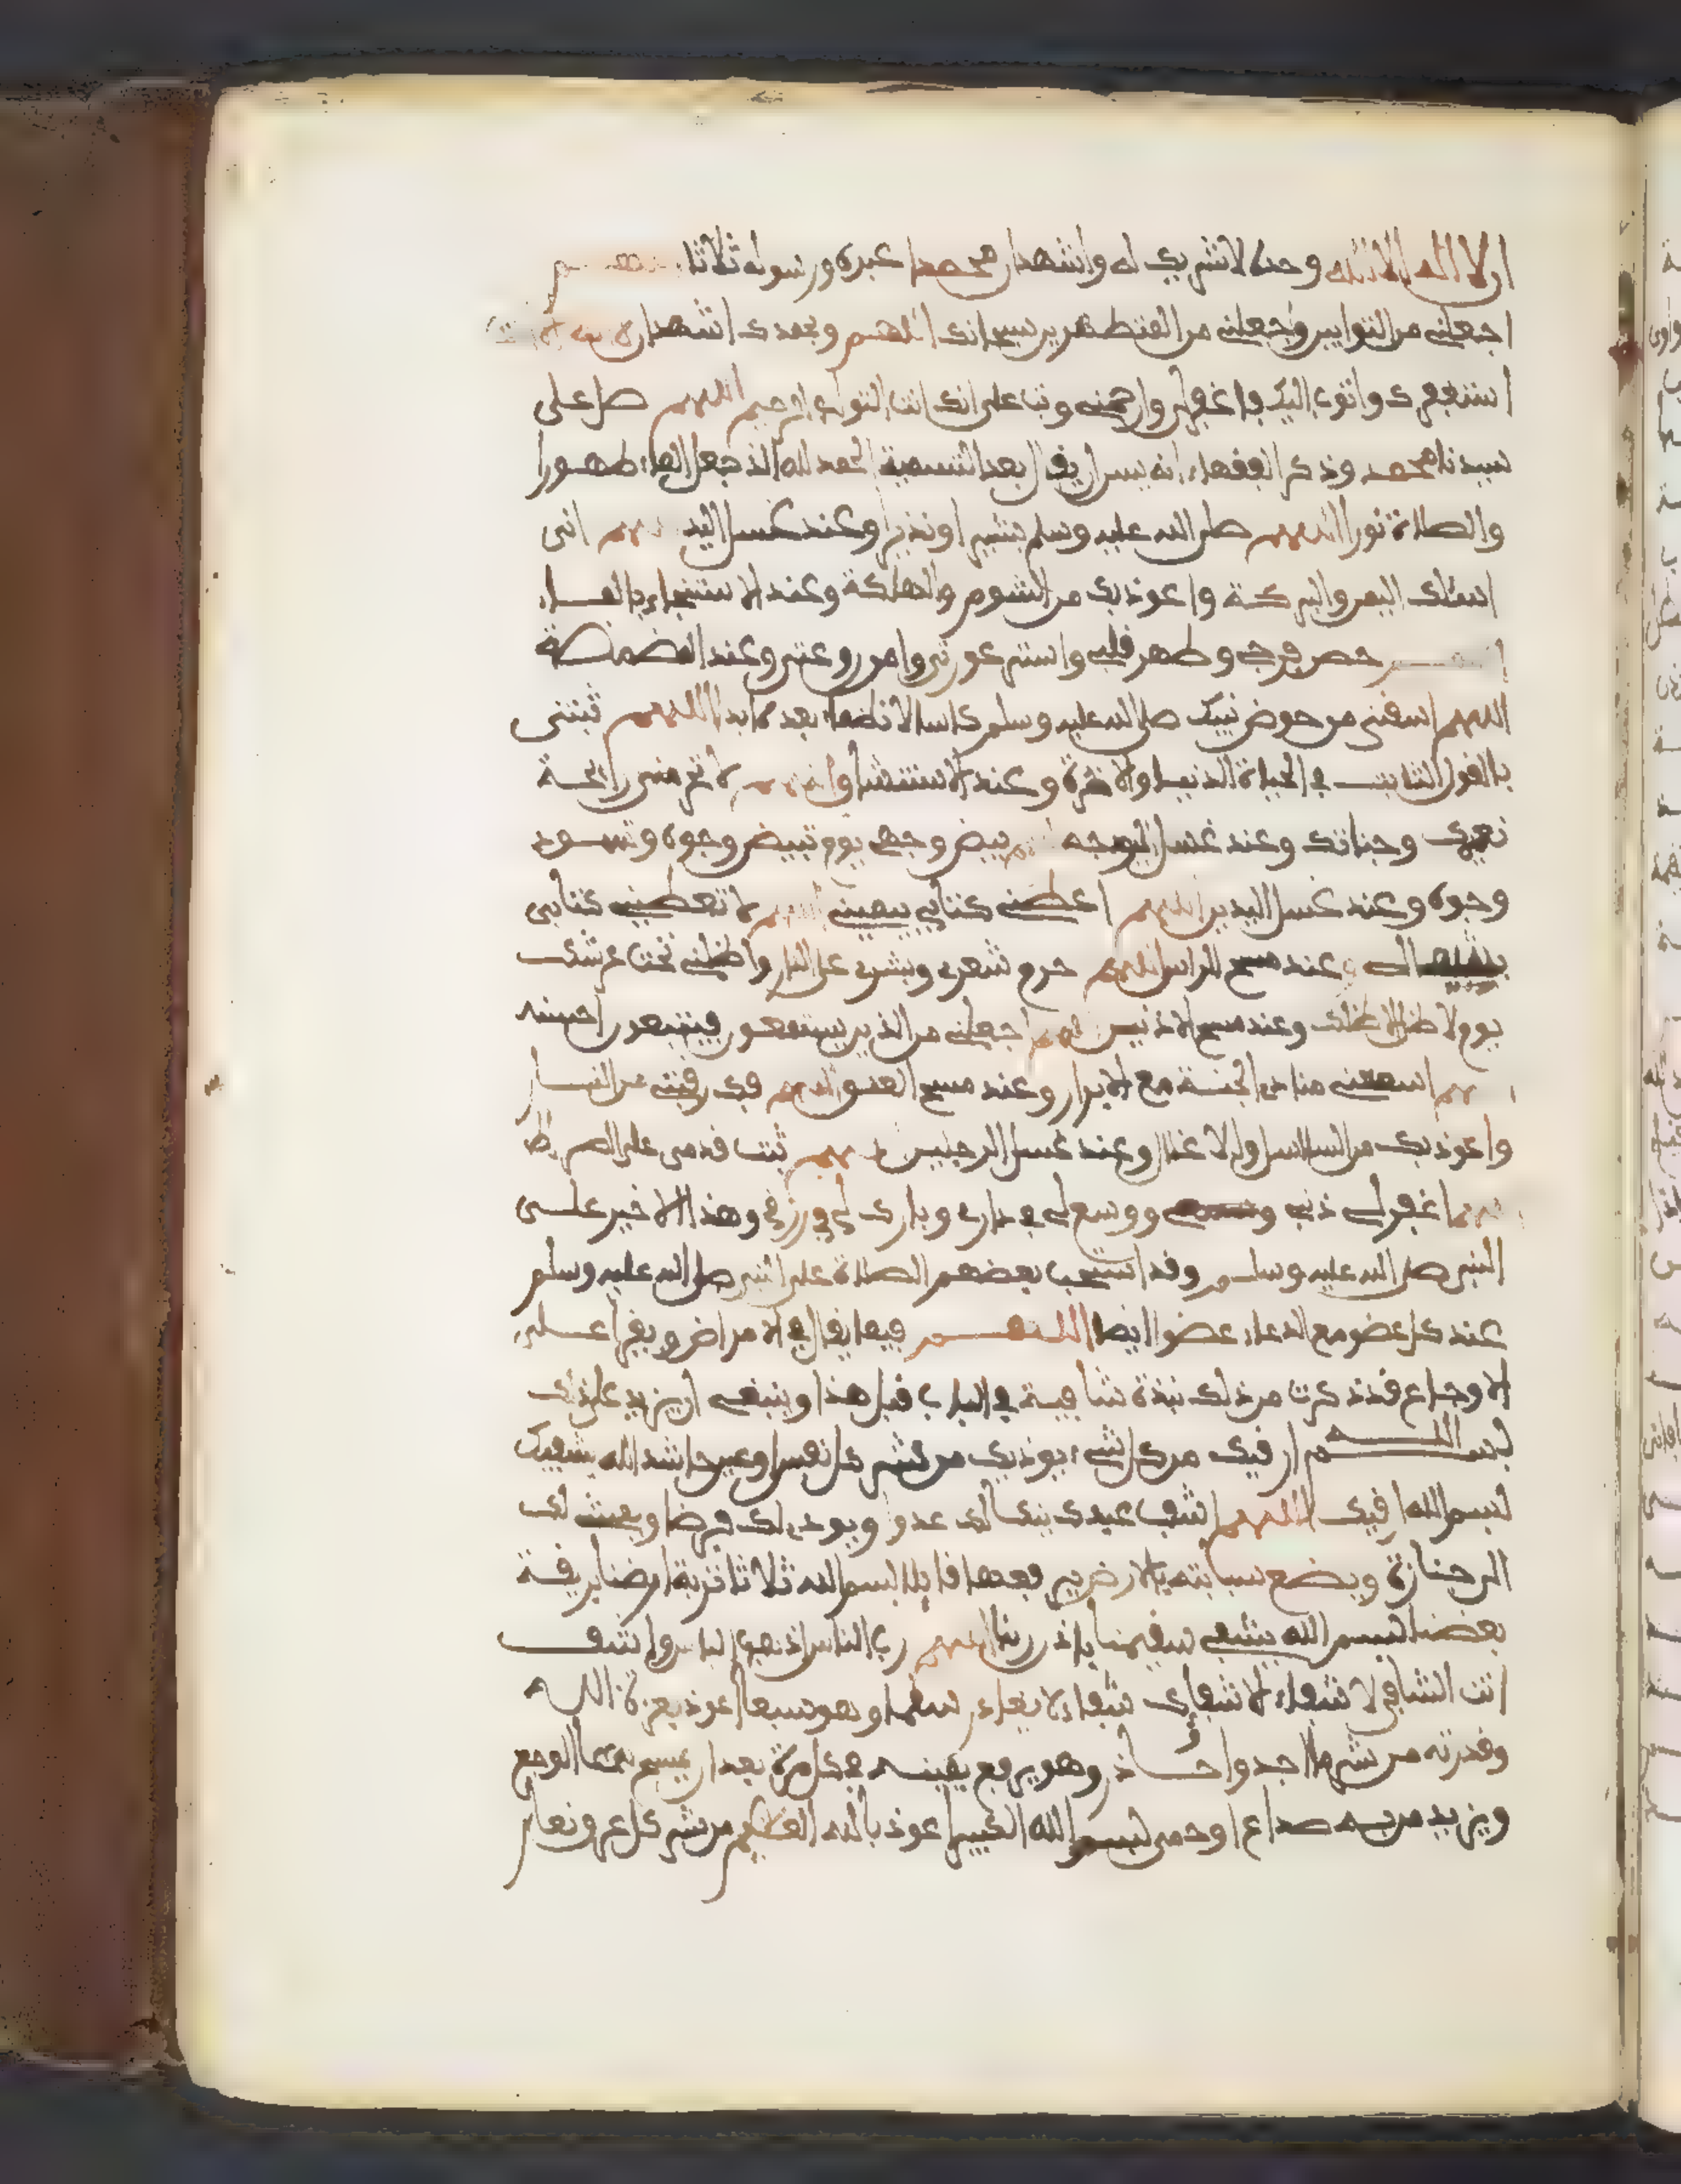 ان لا اله الا الله وحده لا شريك له واشهد ان محمدا عبده ورسوله ثلاثا اللهم
اجعلني من التوابين واجعلني من المتطهرين سبحانك اللهم وبحمدك اشهد ان لا اله الا انت
استغفرك واتوب اليك فاغفر لي وارحمني وتب علي انك انت التواب الرحيم اللهم صل على
سيدنا محمد وذكر الفقهاء انه يسن ان يقال بعد التسمية الحمد لله الذ جعل الماء طهورا
والصلاة نورا اللهم صلى الله عليه وسلم بشيرا ونذيرا وعند غسل اليد اللهم انى
اسئلك اليمن والبركة واعوذ بك من الشوم والهلكة وعند الاستنجاء بالماء
اللهم حصن فرجي وطهر قلبي واستر عورتي وامن روعتي وعند المضمضة
اللهم اسقنى من حوض نبيك صلى الله عليه وسلم كاسا لا نظما بعده ابدا اللهم ثبتنى
بالقول الثابت في الحياة الدنيا والاخرة وعند الاستنشاق اللهم لا تحرمنى رائحة
نعيمك وجناتك وعند غسل الوجه اللهم بيض وجهي يوم تبيض وجوه وتسود
وجوه وعند غسل اليدين اللهم اعطني كتابي بيميني اللهم لا تعطيني كتابى
بشمالي وعند مسح الراس اللهم حرم شعري وبشري على النار واظلني تحت عرشك
يوم لا ظل الا ظلك وعند مسح الاذنين اللهم اجعلني من الذين يستمعون فيتبعون احسنه
اللهم اسمعني منادي الجنة مع الابرار وعند مسح العنق اللهم فك رقبتي من النار
واعوذ بك من السلاسل والاغلال وعند غسل الرجلين اللهم ثبت قدمى على الصراط
اللهم اغفر لي ذنبي ووسع لي في داري وبارك لي في رزقي وهذا الاخير عن
النبي صلى الله عليه وسلم وقد استحب بعضهم الصلاة على النبي صلى الله عليه وسلم
عند كل عضو مع الدعاء عضوا ايضا اللهم فيما يقال في الامراض ويقرا على
الاوجاع قد ذكرت من ذلك نبذة شافية في الباب قبل هذا وينبغي ان يزيد على ذلك
بسم الله ارقيك من كل شيء يوذيك من شر كل نفس او عين حاسد الله يشفيك
بسم الله ارقيك اللهم اشف عبدك ينكا لك عدوا ويودي لك فرضا ويمش لك
الى جنازة ويضع سبابته بالارض ثم يرفعها قايلا بسم الله ثلاثا تربة ارضنا بريقة
بعضنا بسم الله يشفي سقيمنا باذن ربنا اللهم رب الناس اذهب الباس واشف
انت الشافي لا شفاء الا شفاوك شفاء لا يغادر سقما وهو سبعا اعوذ بعزة الله
وقدرته من شر ما اجد واحاذر وهو يرفع يمينه في كل مرة بعد ان يمسح بها الوجع
ويزيد من به صداع او حمى بسم الله الكبير اعوذ بالله العظيم من شر كل عرق نعار